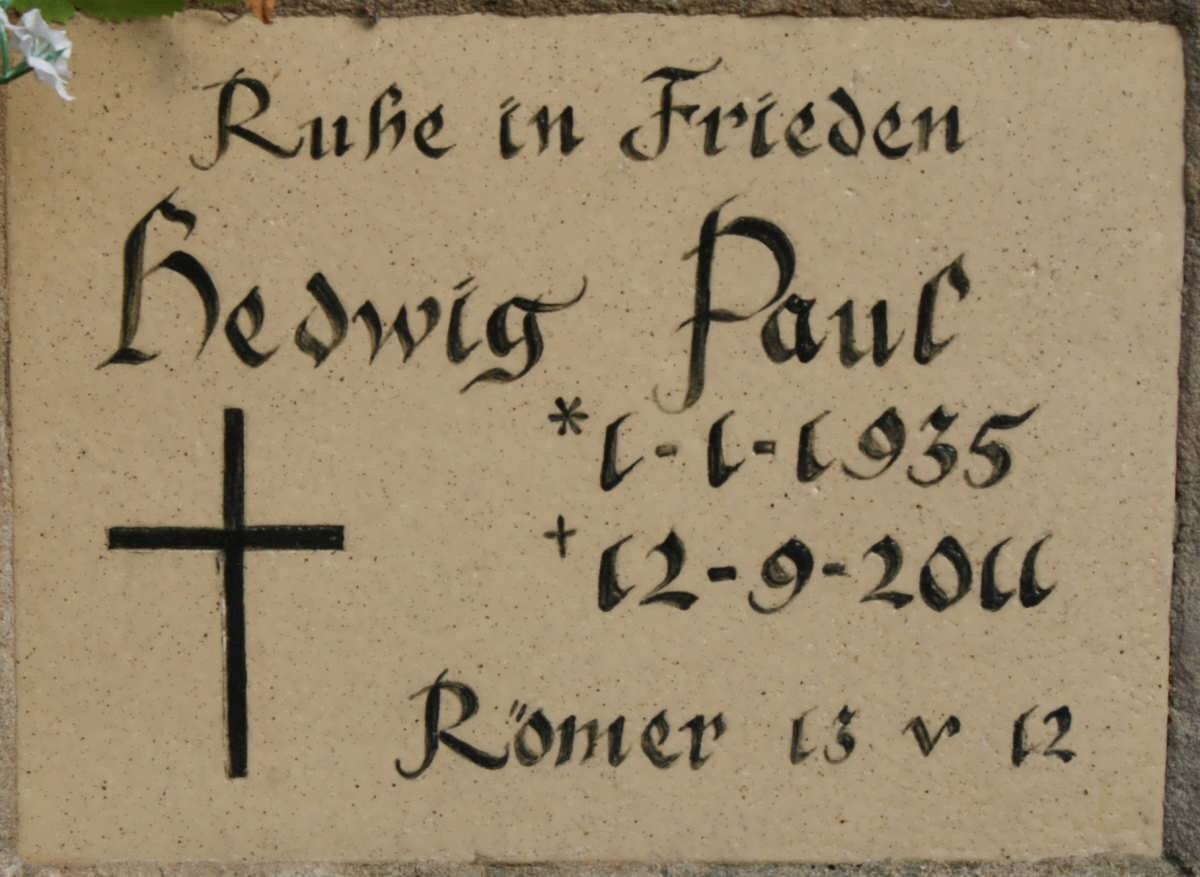 Ruhe in Frieden
Hedwig Paul
* 1-1-1935
† 12-9-2011
Römer 13 v 12